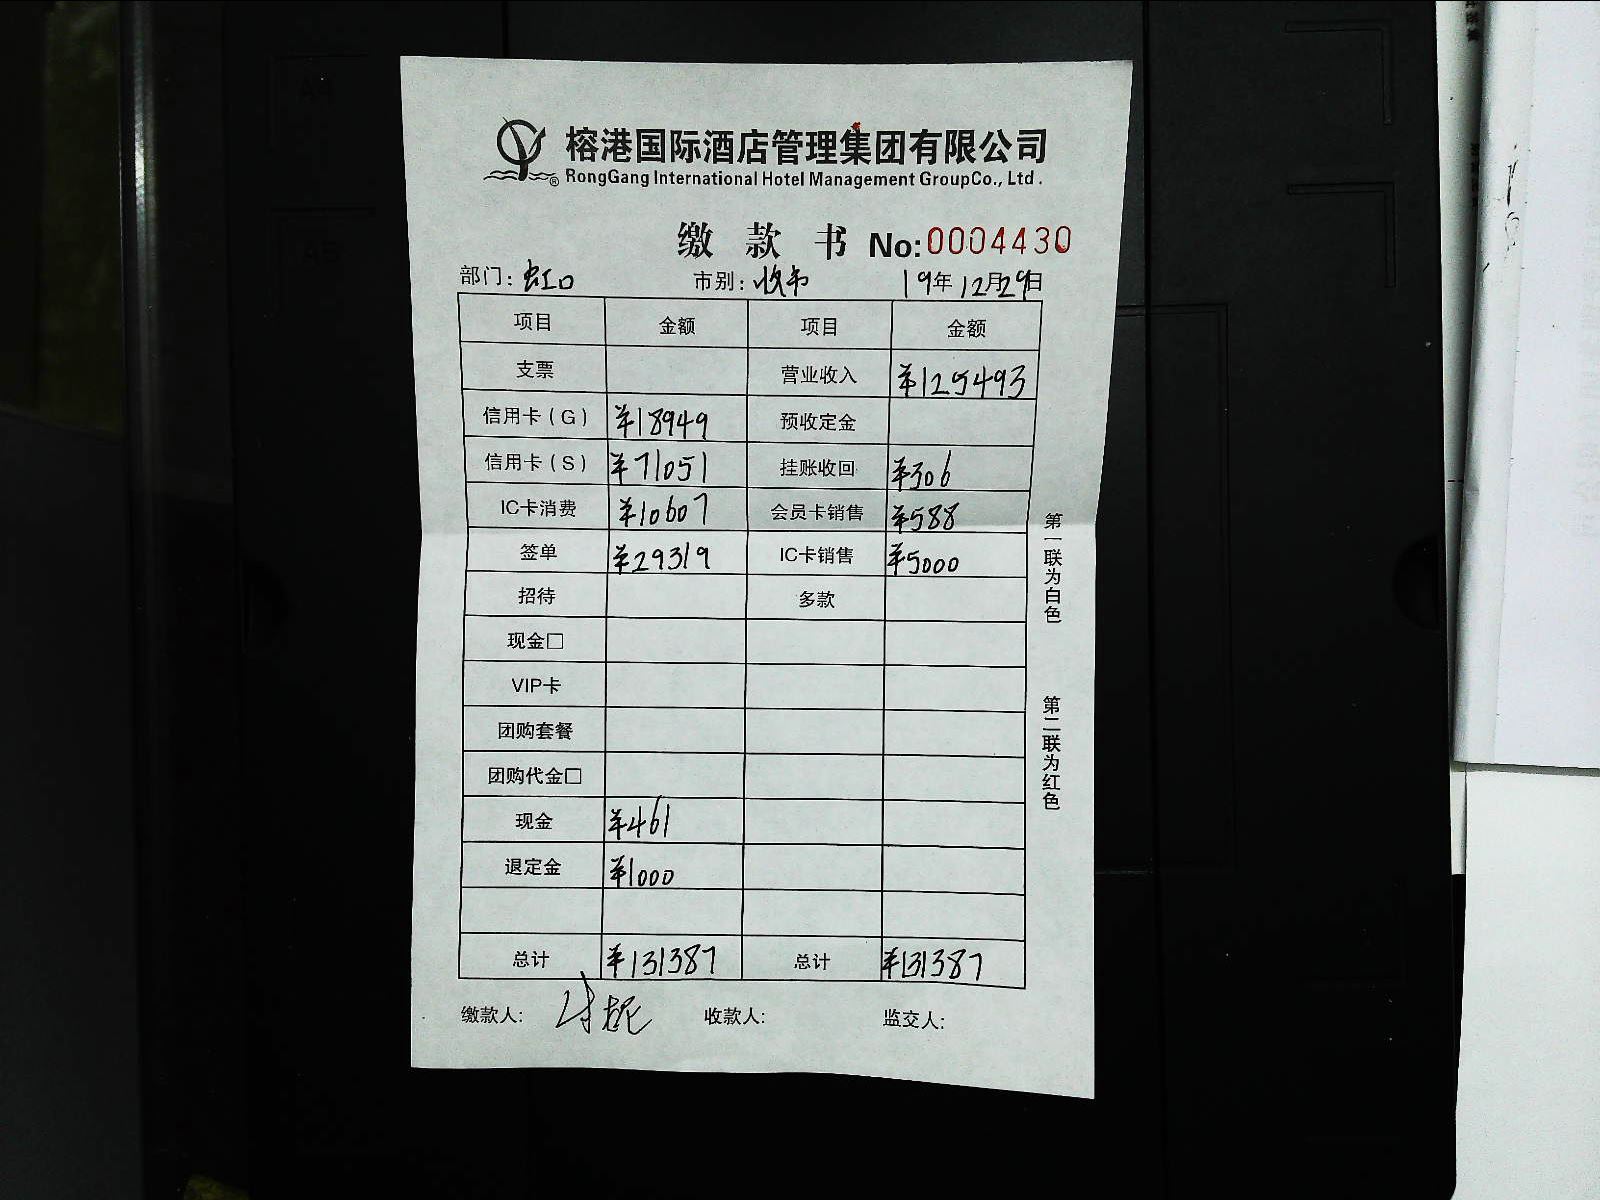 榕港国际酒店管理集团有限公司
RongGang International Hotel Management GroupCo., Ltd.
缴款书 No:0004430
部门: 虹口 市别: 19年12月29日
项目 金额 项目 金额
支票 营业收入 ¥125493
信用卡(G) ¥18949 预收定金
信用卡(S) ¥71051 挂账收回 ¥306
IC卡消费 ¥10607 会员卡销售 ¥588
签单 ¥29319 IC卡销售 ¥5000
招待 多款
现金□
VIP卡
团购套餐
团购代金□
现金 ¥461
退定金 ¥1000
总计 ¥131387 总计 ¥131387
缴款人: 收款人: 监交人:
第一联为白色
第二联为红色